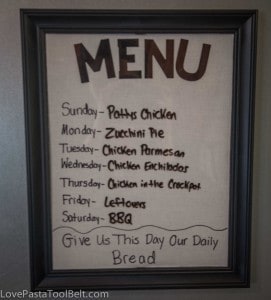 MENU
Sunday- Pattys Chicken
Monday- Zucchini Pie
Tuesday- Chicken Parmesan
Wednesday- Chicken Enchiladas
Thursday- Chicken in the Crockpot
Friday- Leftovers
Saturday- BBQ
Give Us This Day Our Daily
Bread
LovePastaToolBelt.com